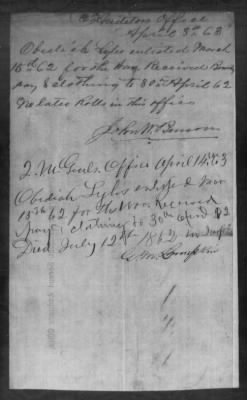 Auditors Office
April 8th 63
Obediah Lyles enlisted March
18th 62 for the War. Received Bounty
pay & clothing to 30th April 62
No later Rolls in this office
John W. Benson
Q. M. Genls. Office April 14th 63
Obediah Lyles enlisted Mar
18th 62 for the War. Received
pay & clothing to 30th April 62
Died July 12th 1862 in